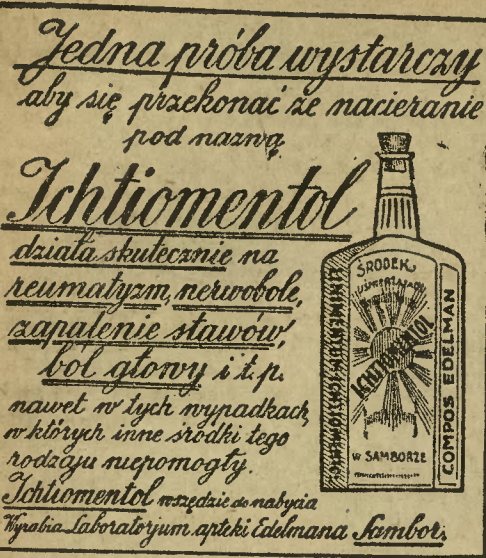 Jedna próba wystarczy
aby się przekonać że nacieranie
pod nazwą
Ichtiomentol
działa skutecznie na
reumatyzm, nerwobole,
zapalenie stawów,
ból głowy i t. p.
nawet w tych wypadkach,
w których inne środki tego
rodzaju niepomogły.
Ichtiomentol wszędzie do nabycia
Wyrabia Laboratoryum apteki Edelmana Sambor.
ŚRODEK
ICHTIOMENTOL
W SAMBORZE
COMPOS EDELMAN